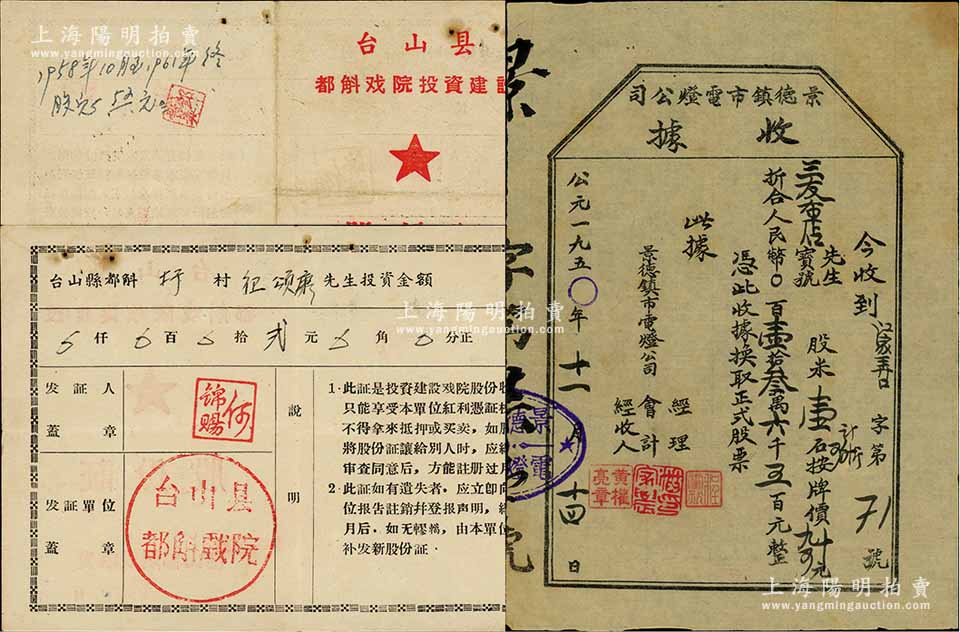 上海陽明拍賣
www.yangmingauction.com
台山县
都斛戏院投資建設
1958年10月至1961年終
台山縣都斛 圩 村 伍頌康 先生投資金額
仟 百 拾 弍 元 角 分正
发証人
盖章
何錦賜
发証單位
盖章
台山县
都斛戲院
說明
1·此証是投資建設戏院股份收
只能享受本單位紅利憑証
不得拿來抵押或买卖，如
將股份証讓給別人時，应
审查同意后，方能註册过
2·此証如有遺失者，应立卽向
位报告註銷幷登报声明，
月后，如无轇轕，由本單位
补发新股份証。
上海陽明拍賣
www.yangmingauction.com
景德鎮市電燈公司
收據
字第71號
今收到
三友布店 先生 寶號 股米壹石按牌價
折合人民幣〇百壹拾叁萬六千五百元整
憑此收據換取正式股票
此據
景德鎮市電燈公司
經理
會計
經收人
黃權亮章
公元一九五〇年十一月十四日
景德
電燈
上海陽明拍賣
www.yangmingauction.com